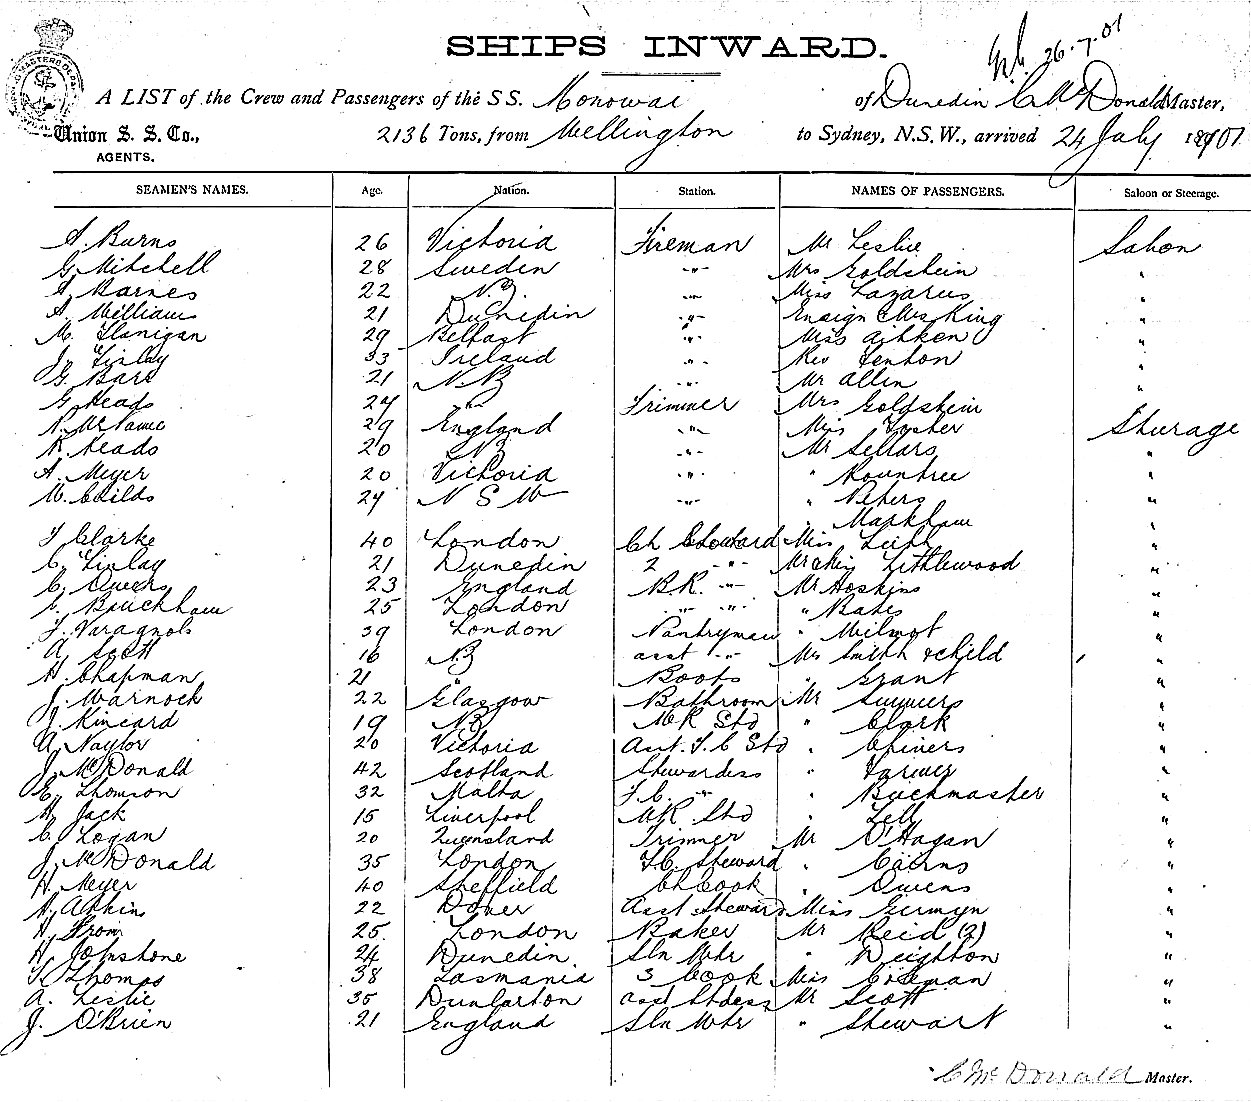 SHIPS INWARD.
26.7.01
A LIST of the Crew and Passengers of the S S. Monowai of Dunedin C McDonald Master,
Union S. S. Co., 2136 Tons, from Wellington to Sydney, N.S.W., arrived 24 July 1901
AGENTS.
SEAMEN'S NAMES. Age. Nation. Station. NAMES OF PASSENGERS. Saloon or Steerage.
A. Burns 26 Victoria Fireman Mr Leslie Saloon
G. Mitchell 28 Sweden -"- Mrs Goldstein "
A Barnes 22 N.Z. -"- Miss Lazarus "
A. Williams 21 Dunedin -"- Ensign & Mrs King "
M. Flanigan 29 Belfast -"- Miss Aitken "
J. Finlay 33 Ireland -"- Rev Fenton "
G. Barr 21 N Z -"- Mr Allen "
G. Heads 24 -"- Trimmer Mrs Goldstein
29 England -"- Miss Steerage
R. Heads 20 N Z -"- Mr Sellars "
A. Meyer 20 Victoria -"- " Rountree "
W. Childs 24 N S W -"- " Peters "
" Markham "
T Clarke 40 London Ch Steward Miss "
C. Finlay 21 Dunedin 2 -"- Littlewood "
C. Owens 23 England B.R. -"- Mr Hoskins "
Bruckham 25 London -"- -"- " Bates "
F. Varagnols 39 London Pantryman " Wilmot "
A. Scott 16 N.Z asst -"- Mrs Smith & child "
H. Chapman 21 " Boots " Grant "
J. Warnock 22 Glasgow Bathroom Mr Summers "
J. Kincard 19 N Z M R Std " Clark "
A. Naylor 20 Victoria Asst. F C Std " Chivers "
J. McDonald 42 Scotland Stewardess " "
E. Thomson 32 Malta F.C. -"- " Buckmaster "
A. Jack 15 Liverpool M R Std " "
C. Logan 20 Queensland Trimmer Mr O'Hagan "
J. McDonald 35 London F.C. Steward " Cairns "
H. Meyer 40 Sheffield Ch Cook " Owens "
A. Atkins 22 Dover Asst Steward Miss Germyn "
H. From 25 London Baker Mr Reid (2) "
H. Johnstone 24 Dunedin Sln Wtr " Deighton "
Thomas 38 Tasmania 3 Cook Miss Coleman "
A. Leslie 35 Dunbarton asst Stdess Mr Scott "
J. O'Brien 21 England Sln Wtr " Stewart "
C. McDonald Master.